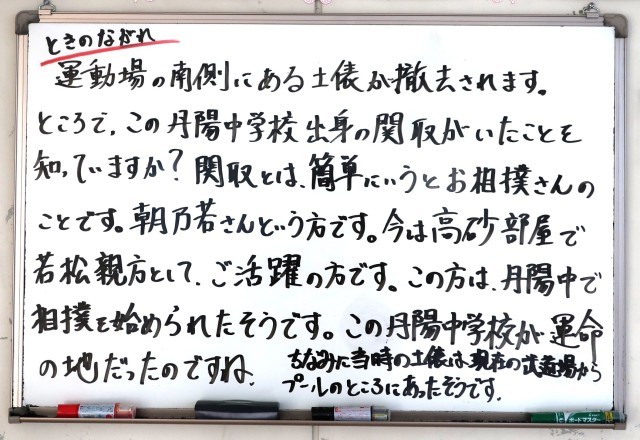 ときのながれ
運動場の南側にある土俵が撤去されます。
ところで、この丹陽中学校出身の関取がいたことを
知っていますか?関取とは、簡単にいうとお相撲さんの
ことです。朝乃若さんという方です。今は高砂部屋で
若松親方として、ご活躍の方です。この方は、丹陽中で
相撲を始められたそうです。この丹陽中学校が運命
の地だったのですね。
ちなみに当時の土俵は、現在の武道場から
プールのところにあったそうです。
ボードマスター